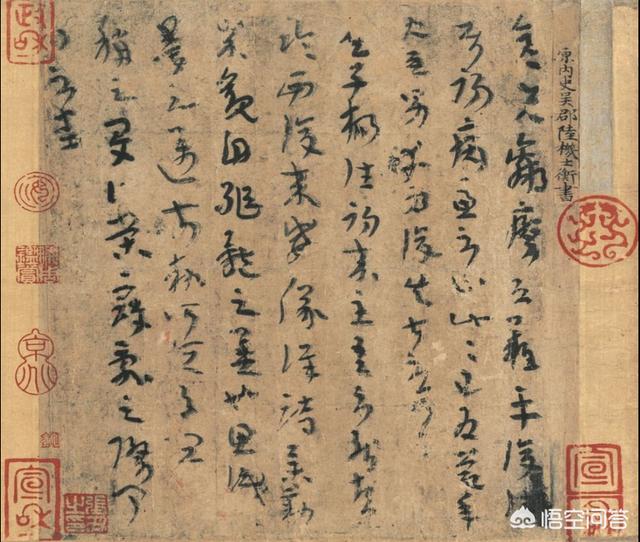 晉內史吳郡陸機士衡書
彥先羸瘵恐難平復往屬
初病慮不止此此已為慶承
使唯男幸為復失前憂耳
子楊往初來主吾不能盡
臨西復來威儀詳跱舉動
成觀自軀體之美也思識
量之邁前執所恆有宜
稱之夏榮寇亂之際聞問
不悉
政和
宣和
宣和
悟空问答